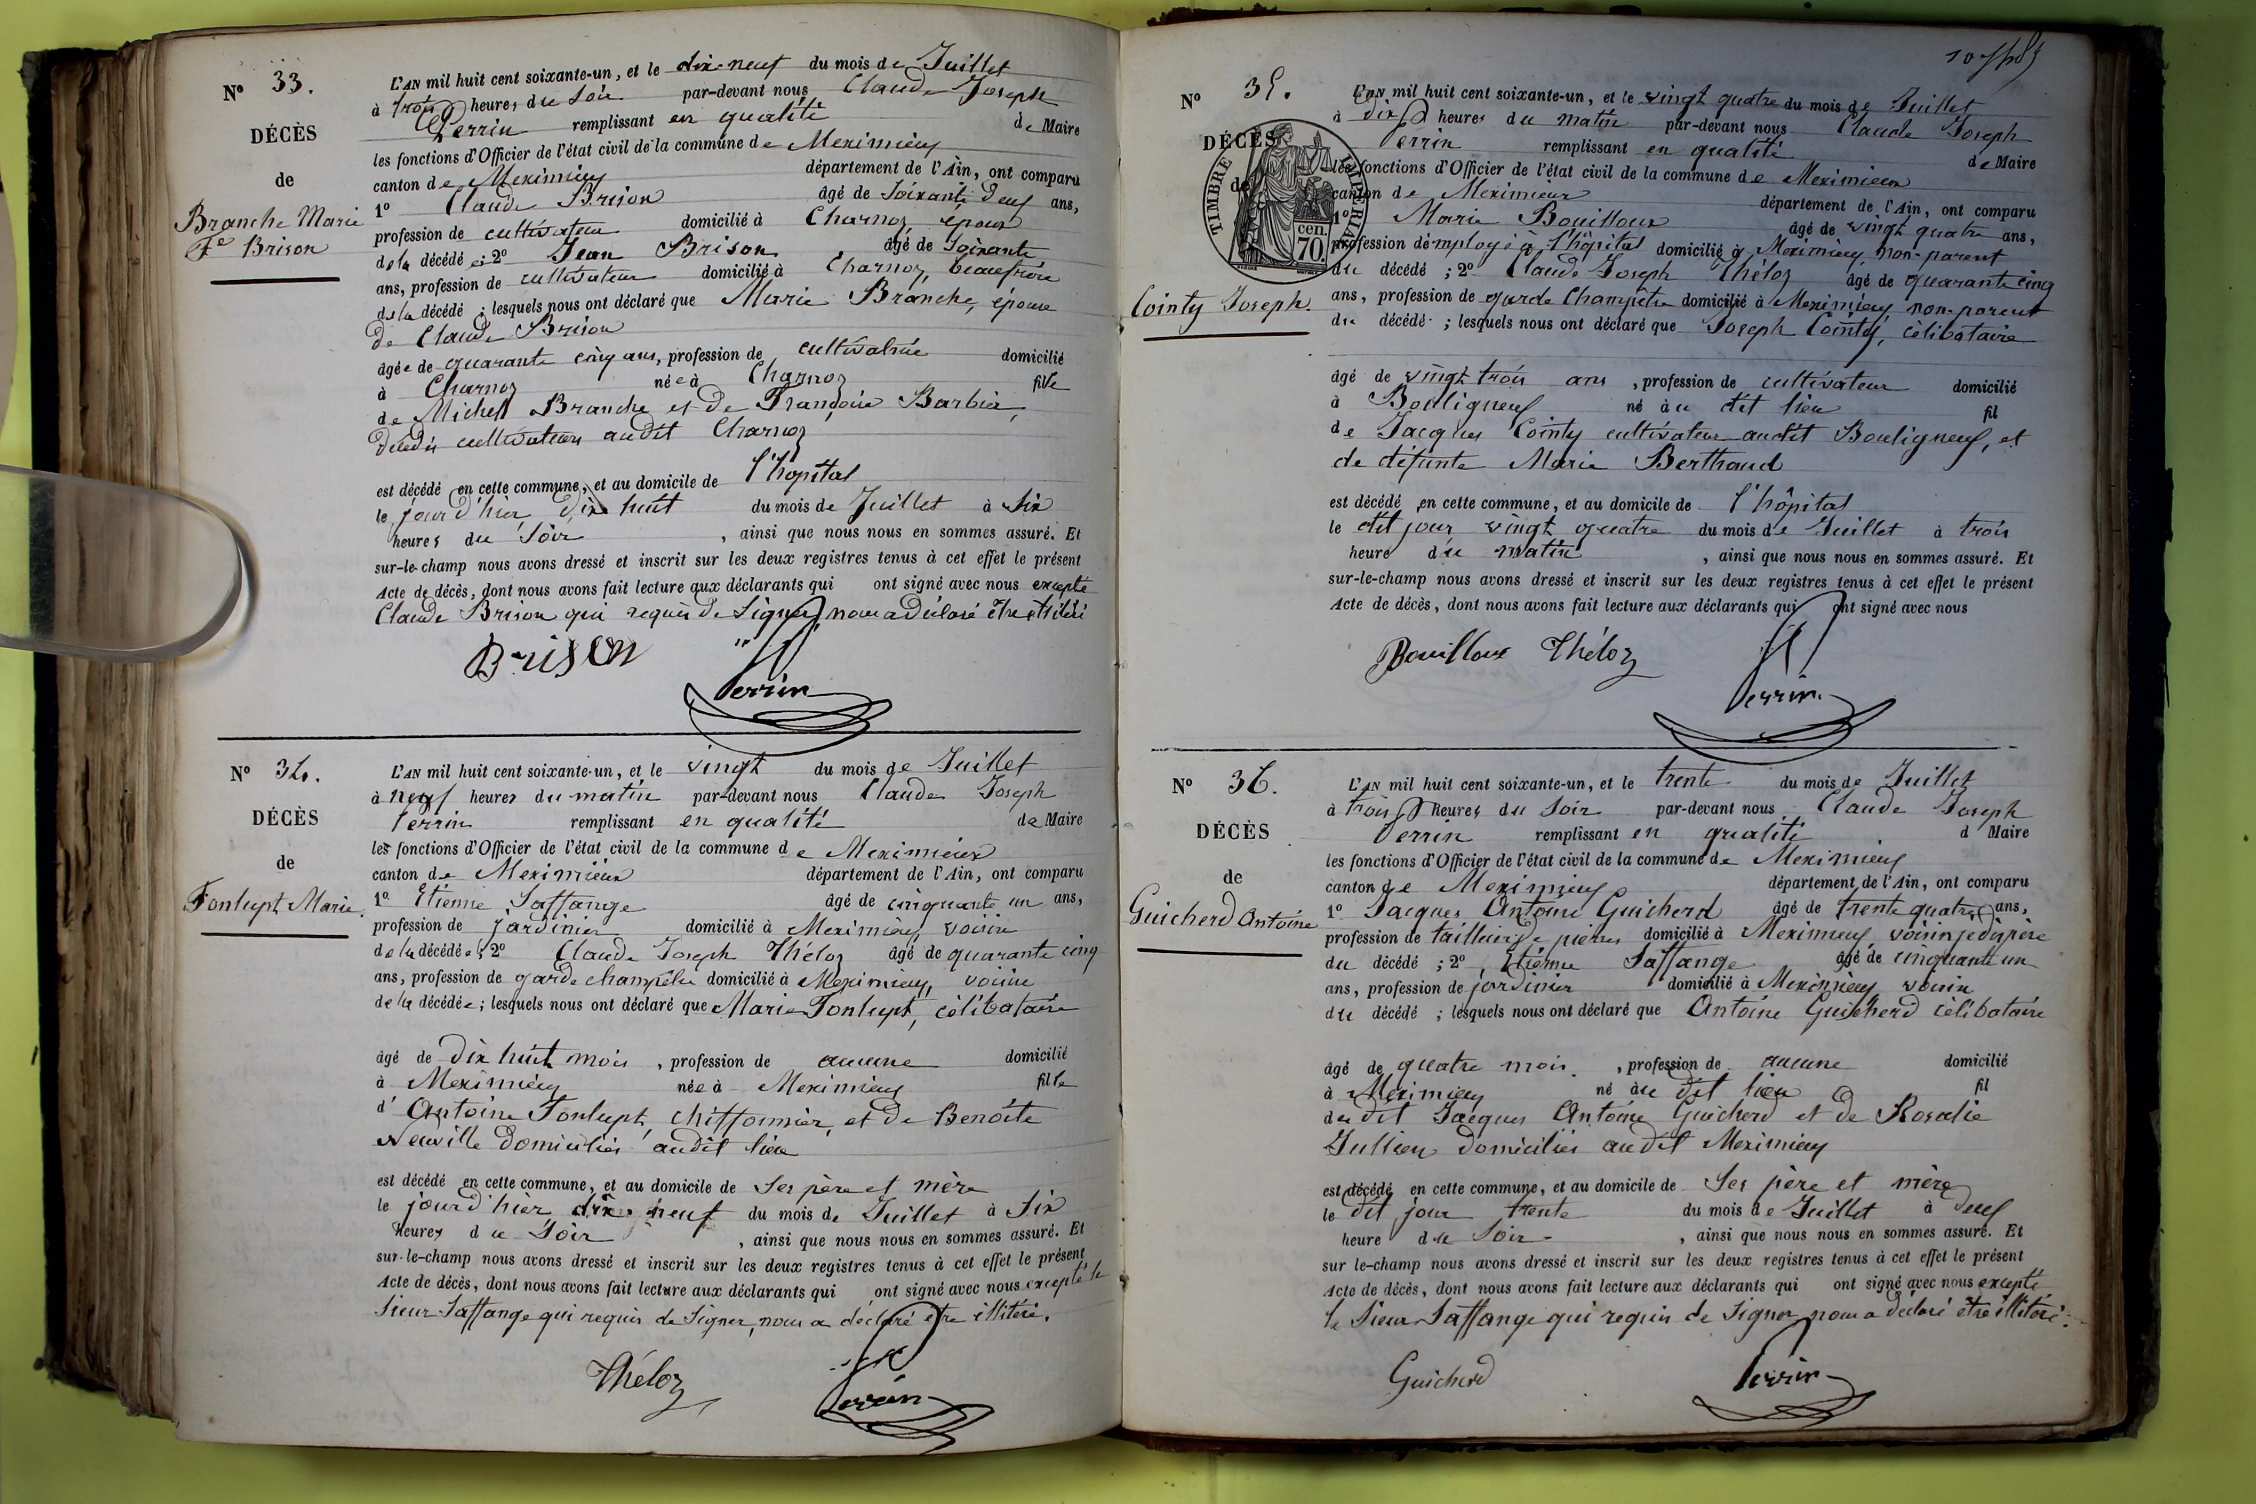 N° 33.
DÉCÈS
de
Branche Marie
Fe Brison
L'AN mil huit cent soixante-un, et le dix-neuf du mois de Juillet
à trois heures du soir par-devant nous Claude Joseph
Perrin remplissant en qualité de Maire
les fonctions d'Officier de l'état civil de la commune de Meximieux
canton de Meximieux département de l'Ain, ont comparu
1° Claude Brison âgé de soixante deux ans,
profession de cultivateur domicilié à Charnoz, époux
de la décédé et 2° Jean Brison âgé de soixante
ans, profession de cultivateur domicilié à Charnoz, beaufrère
de la décédé ; lesquels nous ont déclaré que Marie Branche, épouse
de Claude Brison
âgée de quarante cinq ans, profession de cultivatrice domicilié
à Charnoz née à Charnoz fille
de Michel Branche et de Françoise Barbier,
décédés cultivateurs audit Charnoz
est décédé en cette commune, et au domicile de l'hôpital
le jour d'hier dix huit du mois de Juillet à six
heures du soir , ainsi que nous nous en sommes assuré. Et
sur-le-champ nous avons dressé et inscrit sur les deux registres tenus à cet effet le présent
Acte de décès, dont nous avons fait lecture aux déclarants qui ont signé avec nous excepté
Claude Brison qui requis de signer, nous a déclaré être illitéré
Brison
Perrin
N° 34.
DÉCÈS
de
Fonlupt Marie.
L'AN mil huit cent soixante-un, et le vingt du mois de Juillet
à neuf heures du matin par-devant nous Claude Joseph
Perrin remplissant en qualité de Maire
les fonctions d'Officier de l'état civil de la commune de Meximieux
canton de Meximieux département de l'Ain, ont comparu
1° Etienne Saffange âgé de cinquante un ans,
profession de jardinier domicilié à Meximieux, voisin
de la décédée et 2° Claude Joseph Théloz âgé de quarante cinq
ans, profession de garde champêtre domicilié à Meximieux, voisin
de la décédée ; lesquels nous ont déclaré que Marie Fonlupt, célibataire
âgé de dix huit mois , profession de aucune domicilié
à Meximieux née à Meximieux fille
d' Antoine Fonlupt, chiffonnier, et de Benoîte
Neuville domiciliés audit lieu
est décédé en cette commune, et au domicile de ses père et mère
le jour d'hier dix neuf du mois de Juillet à six
heures du soir , ainsi que nous nous en sommes assuré. Et
sur-le-champ nous avons dressé et inscrit sur les deux registres tenus à cet effet le présent
Acte de décès, dont nous avons fait lecture aux déclarants qui ont signé avec nous excepté le
sieur Saffange qui requis de signer, nous a déclaré être illitéré.
Théloz
Perrin
N° 35.
DÉCÈS
de
TIMBRE IMPERIAL
70. cen.
Cointy Joseph.
L'AN mil huit cent soixante-un, et le vingt quatre du mois de Juillet
à dix heures du matin par-devant nous Claude Joseph
Perrin remplissant en qualité de Maire
les fonctions d'Officier de l'état civil de la commune de Meximieux
canton de Meximieux département de l'Ain, ont comparu
1° Marie Bouilloux âgé de vingt quatre ans,
profession d'employé à l'hôpital domicilié à Meximieux, non-parent
du décédé ; 2° Claude Joseph Théloz âgé de quarante cinq
ans, profession de garde champêtre domicilié à Meximieux, non-parent
du décédé ; lesquels nous ont déclaré que Joseph Cointy, célibataire
âgé de vingt trois ans , profession de cultivateur domicilié
à Bouligneux né au dit lieu fil
de Jacques Cointy cultivateur audit Bouligneux, et
de défunte Marie Berthaud
est décédé en cette commune, et au domicile de l'hôpital
le dit jour vingt quatre du mois de Juillet à trois
heure du matin , ainsi que nous nous en sommes assuré. Et
sur-le-champ nous avons dressé et inscrit sur les deux registres tenus à cet effet le présent
Acte de décès, dont nous avons fait lecture aux déclarants qui ont signé avec nous
Bouilloux Théloz
Perrin
N° 36.
DÉCÈS
de
Guicherd Antoine
L'AN mil huit cent soixante-un, et le trente du mois de Juillet
à trois heures du soir par-devant nous Claude Joseph
Perrin remplissant en qualité d Maire
les fonctions d'Officier de l'état civil de la commune de Meximieux
canton de Meximieux département de l'Ain, ont comparu
1° Jacques Antoine Guicherd âgé de trente quatre ans,
profession de tailleur de pierres domicilié à Meximieux, père
du décédé ; 2° Etienne Saffange âgé de cinquante un
ans, profession de jardinier domicilié à Meximieux, voisin
du décédé ; lesquels nous ont déclaré que Antoine Guicherd célibataire
âgé de quatre mois , profession de aucune domicilié
à Meximieux né au dit lieu fil
du dit Jacques Antoine Guicherd et de Rosalie
Jullien domiciliés audit Meximieux
est décédé en cette commune, et au domicile de ses père et mère
le dit jour trente du mois de Juillet à deux
heure du soir , ainsi que nous nous en sommes assuré. Et
sur le-champ nous avons dressé et inscrit sur les deux registres tenus à cet effet le présent
Acte de décès, dont nous avons fait lecture aux déclarants qui ont signé avec nous excepté
le sieur Saffange qui requis de signer nous a déclaré être illitéré.
Guicherd
Perrin